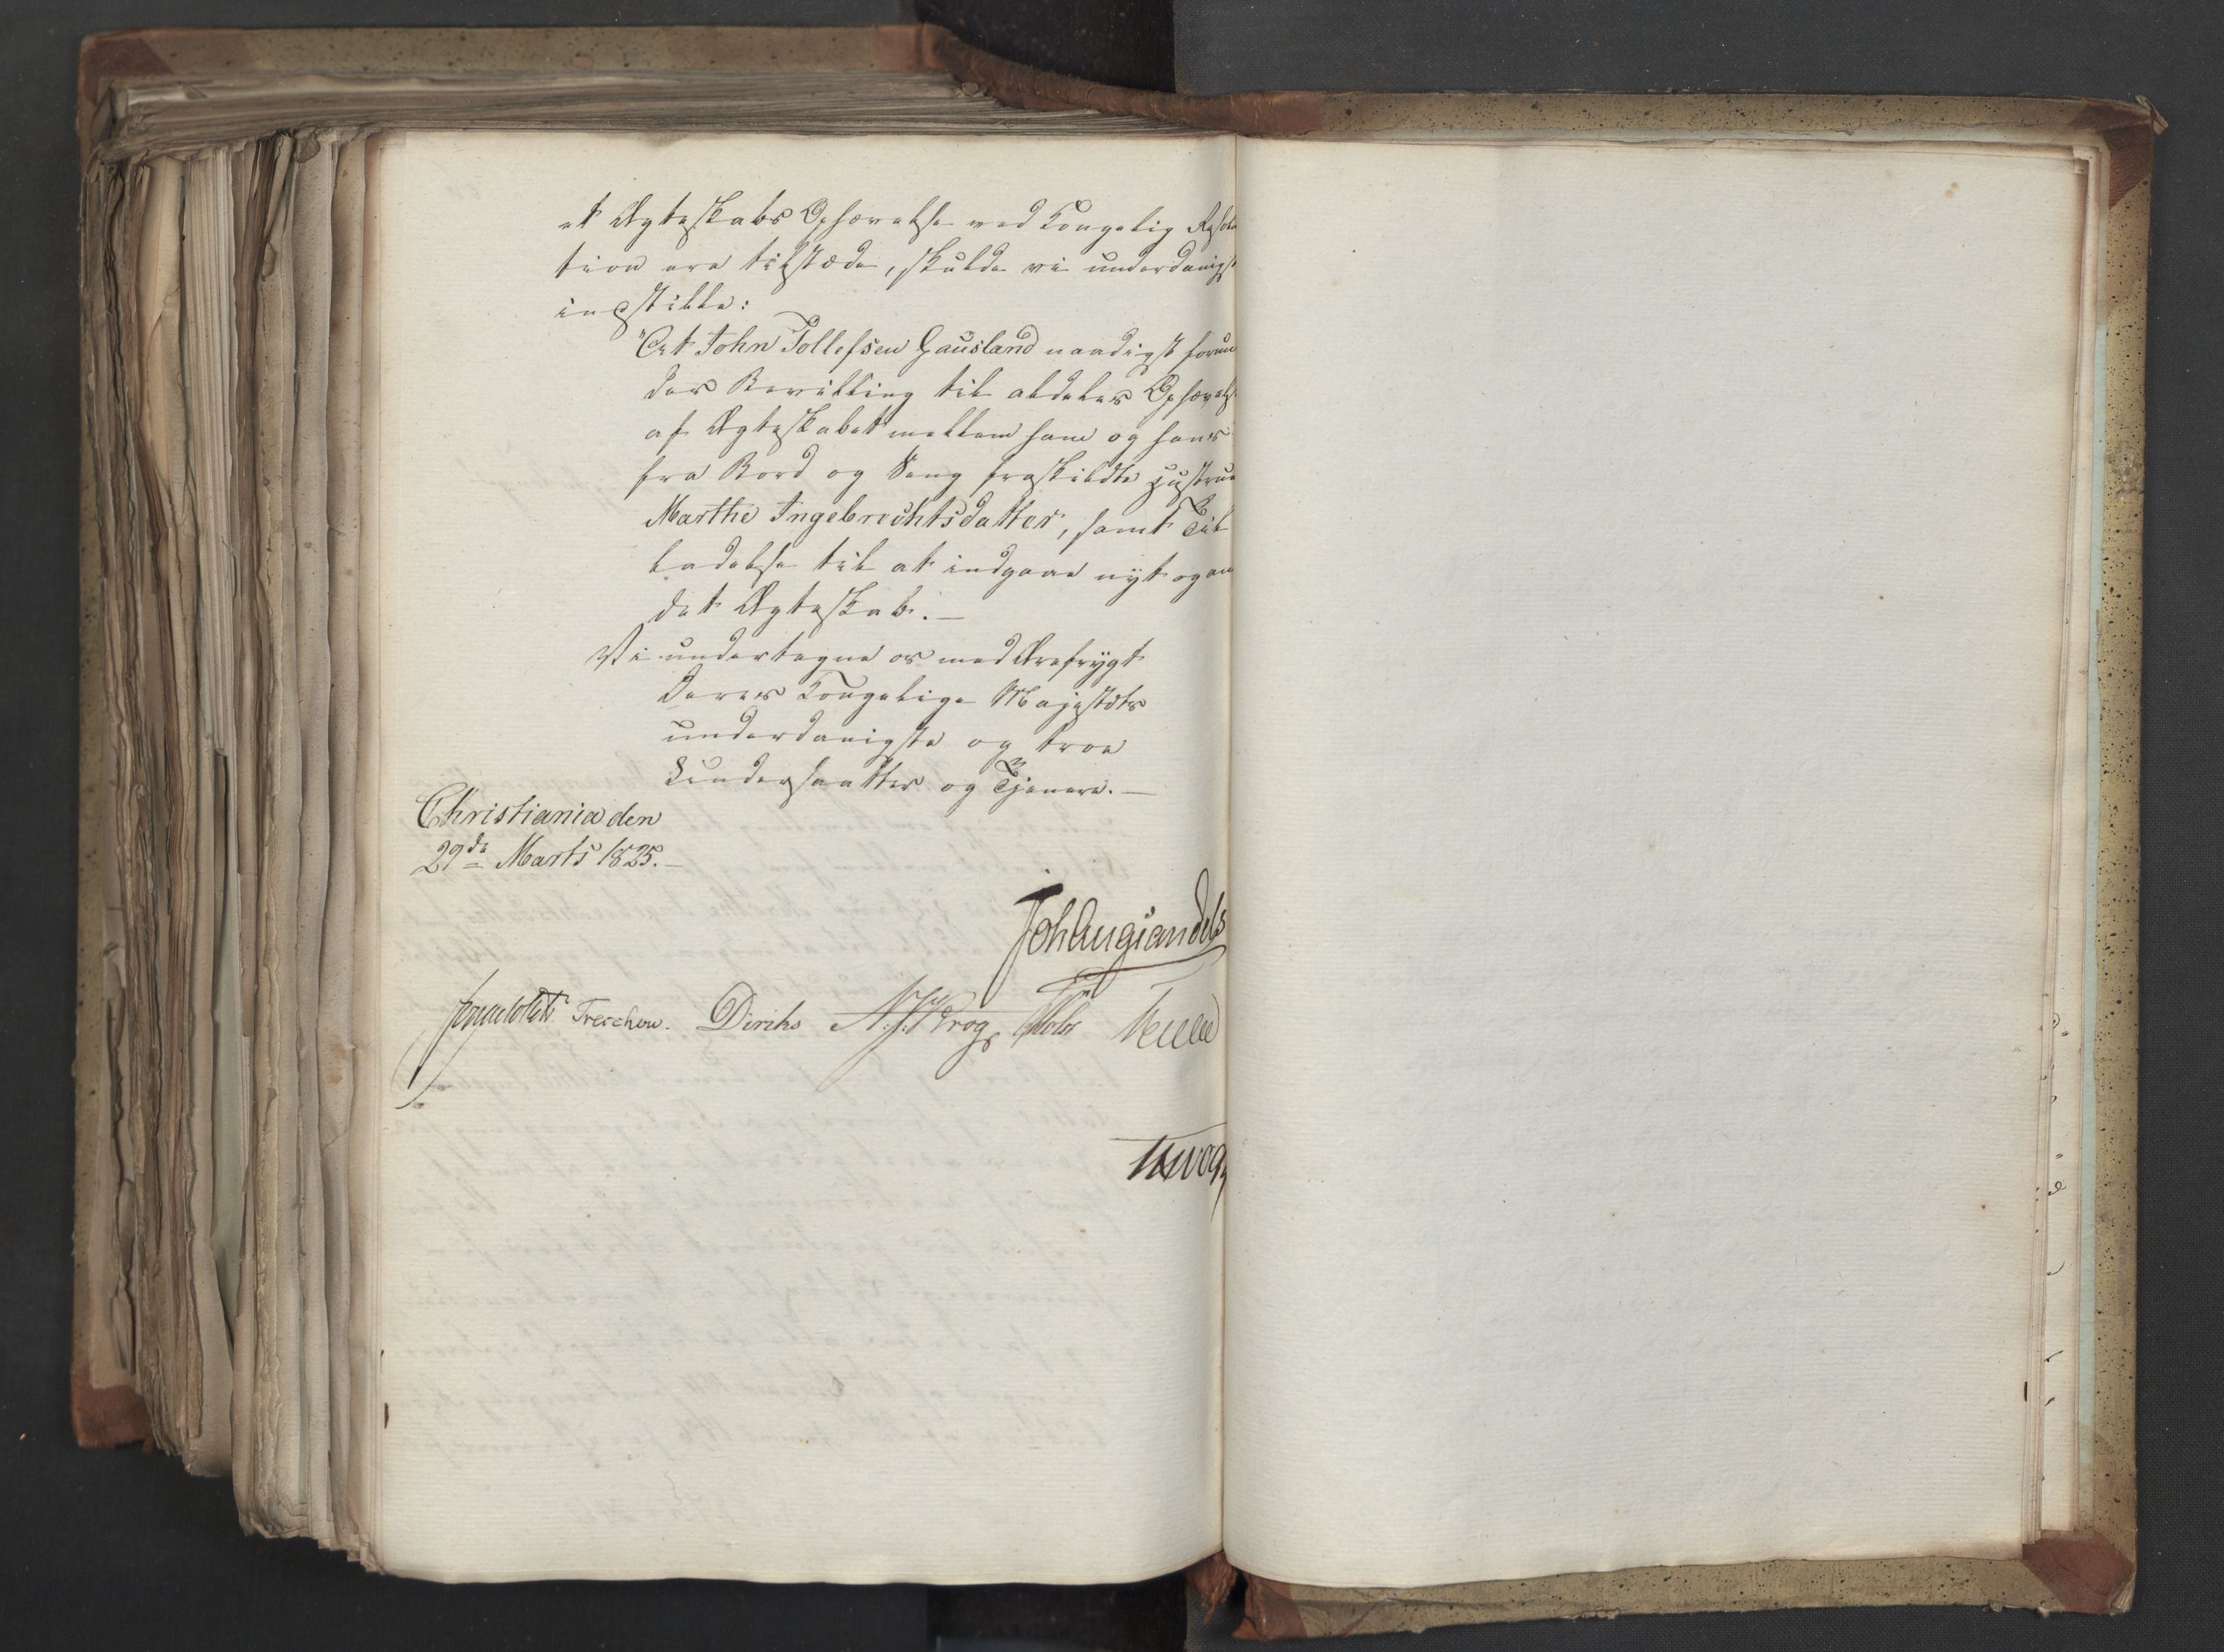 et Ægteskabs Ophævelse ved Kongelig Resolu
tion ere tilstæde, skulde vi underdanigst
indstille:
"At John Tollefsen Gausland naadigst forun
des Bevilling til aldeles Ophævelse
af Ægteskabet mellem ham og hans
fra Bord og Seng fraskildte Hustrue
Marthe Ingebrechtsdatter, samt Til
ladelse til at indgaae nyt og an
det Ægteskab.—
Vi undertegne os med Ærefrygt
Deres Kongelige Majestæts
underdanigste og troe
Undersaatter og Tjenere.—
Christiania den
29de Marts 1825.—
Joh Aug Sandels
Treschow. Diriks